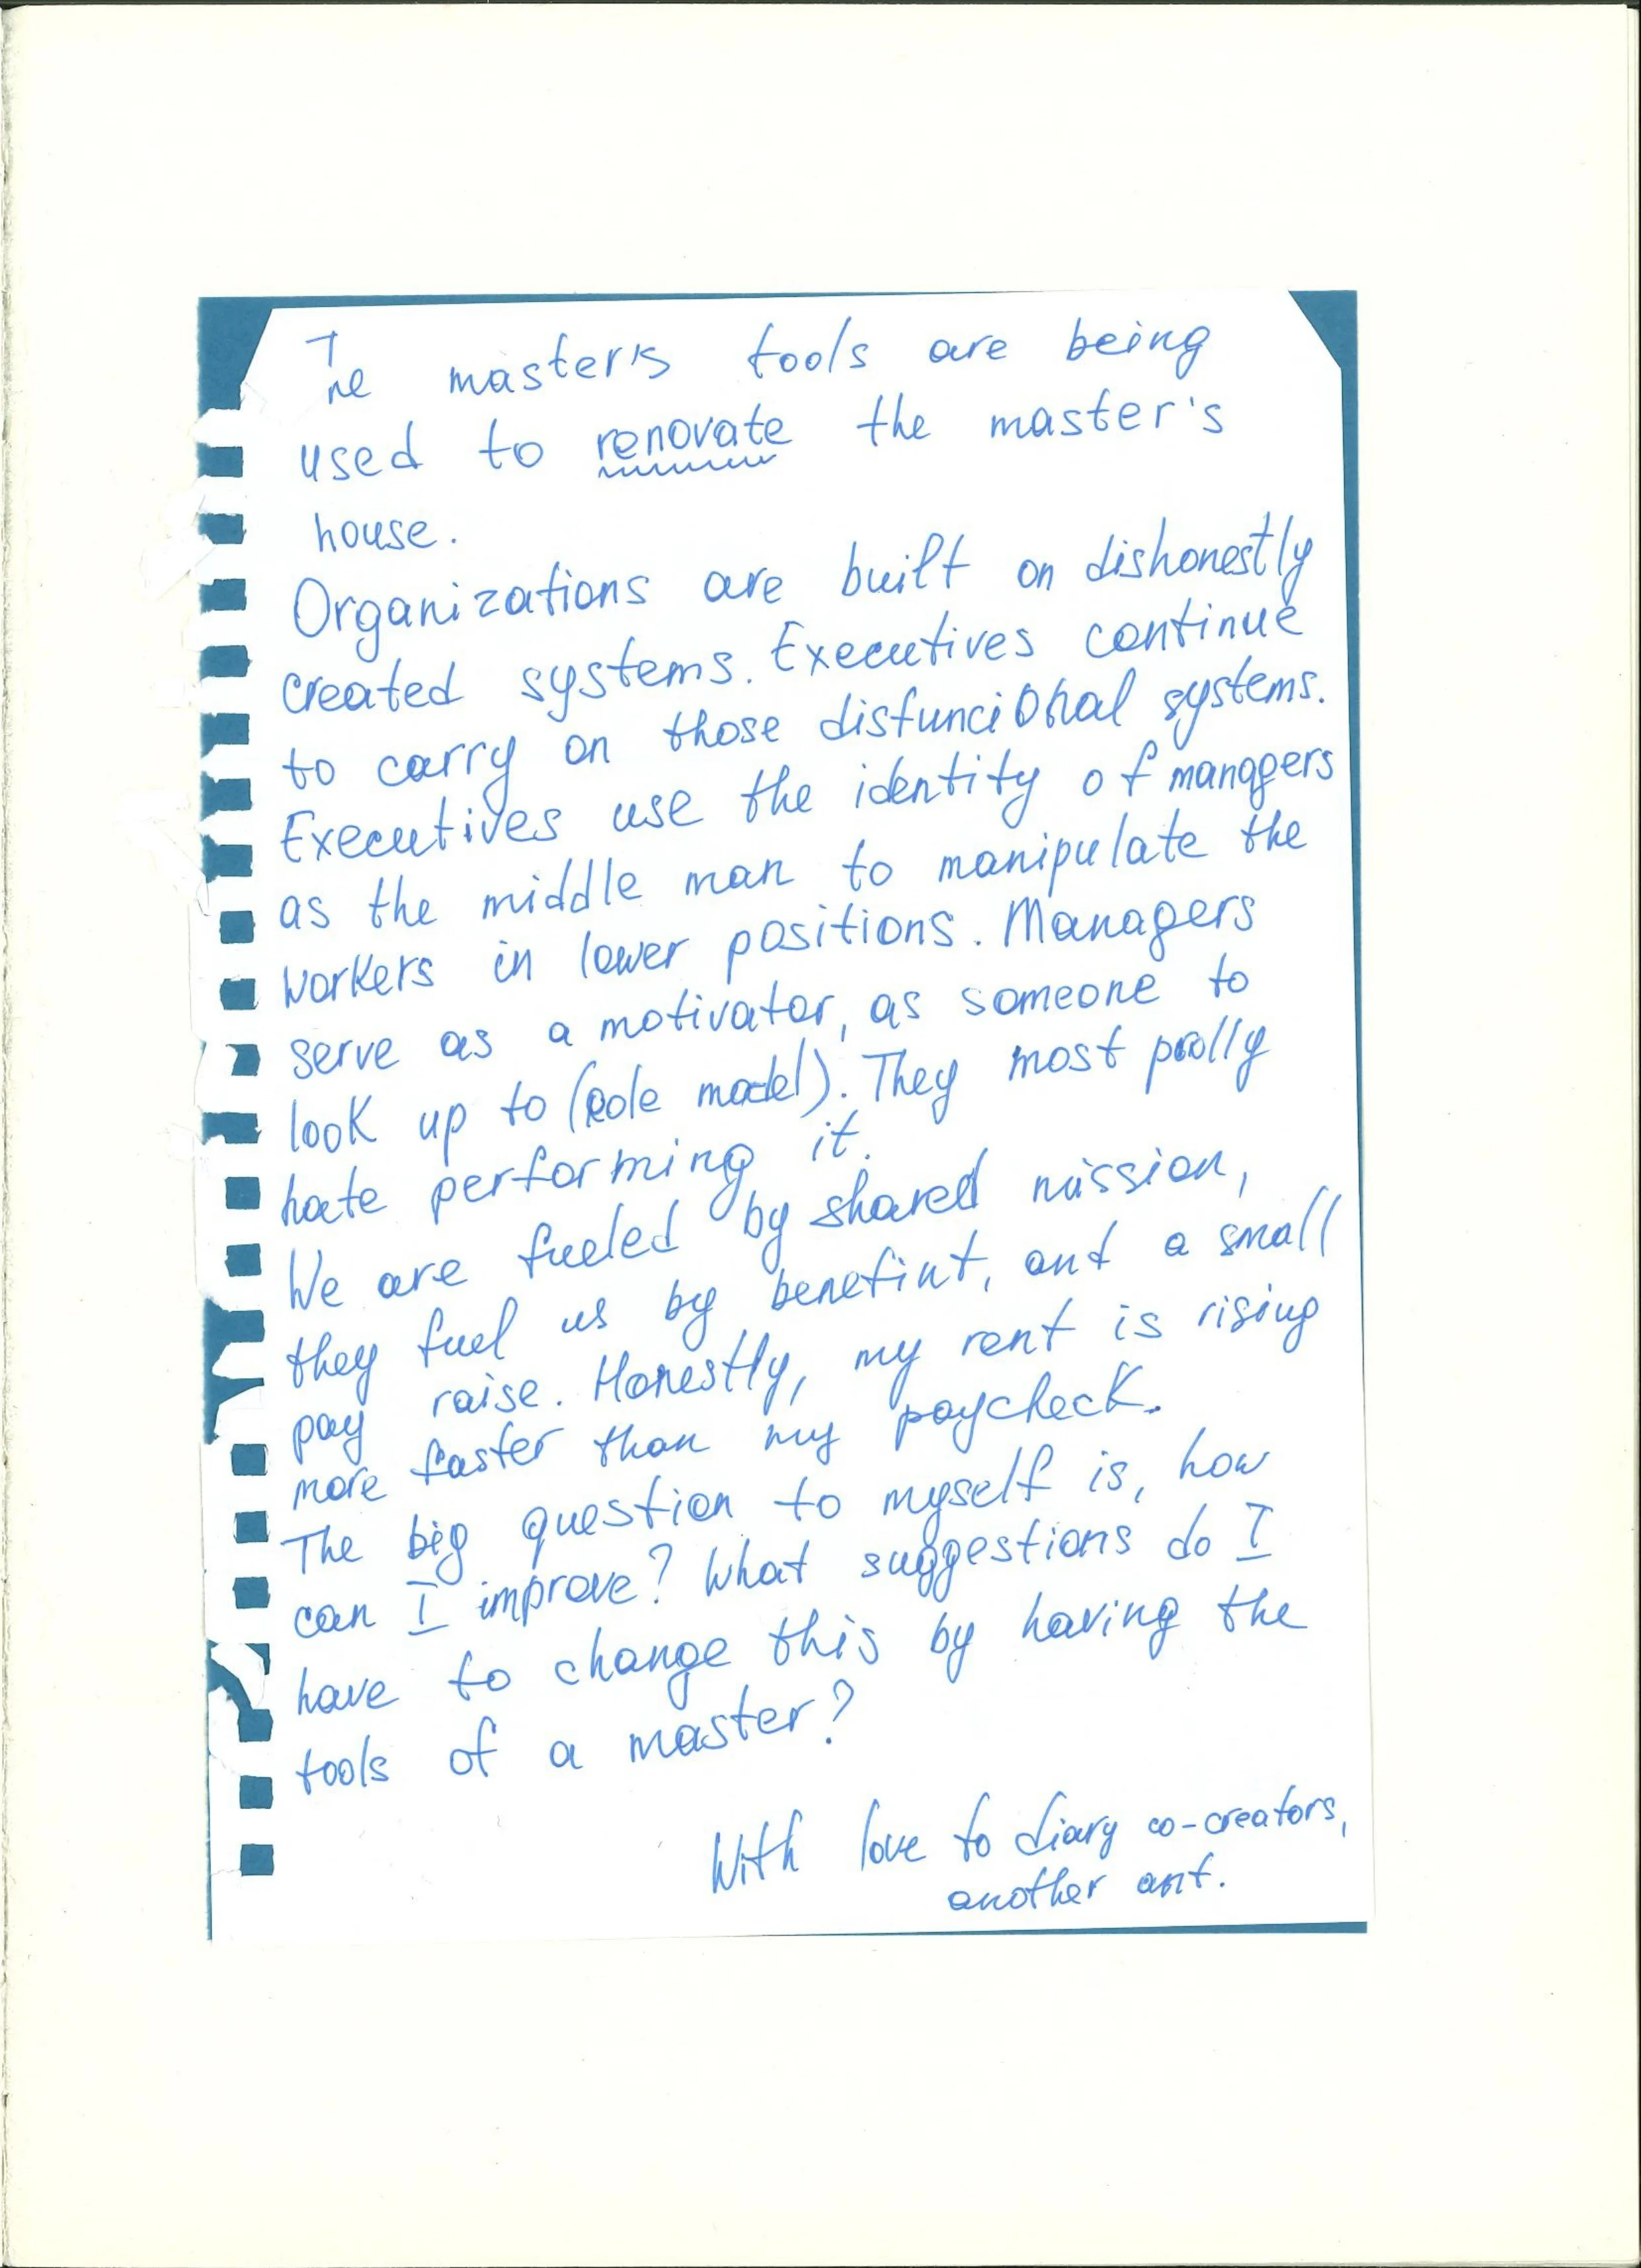 The master's tools are being
used to renovate the master's
house.
Organizations are built on dishonestly
created systems. Executives continue
to carry on those disfuncional systems.
Executives use the identity of managers
as the middle man to manipulate the
workers in lower positions. Managers
serve as a motivator, as someone to
look up to (role model). They most prolly
hate performing it.
We are fueled by shared mission,
they fuel us by benefint, and a small
pay raise. Honestly, my rent is rising
more faster than my paycheck.
The big question to myself is, how
can I improve? What suggestions do I
have to change this by having the
tools of a master?
With love to diary co-creators,
another ant.